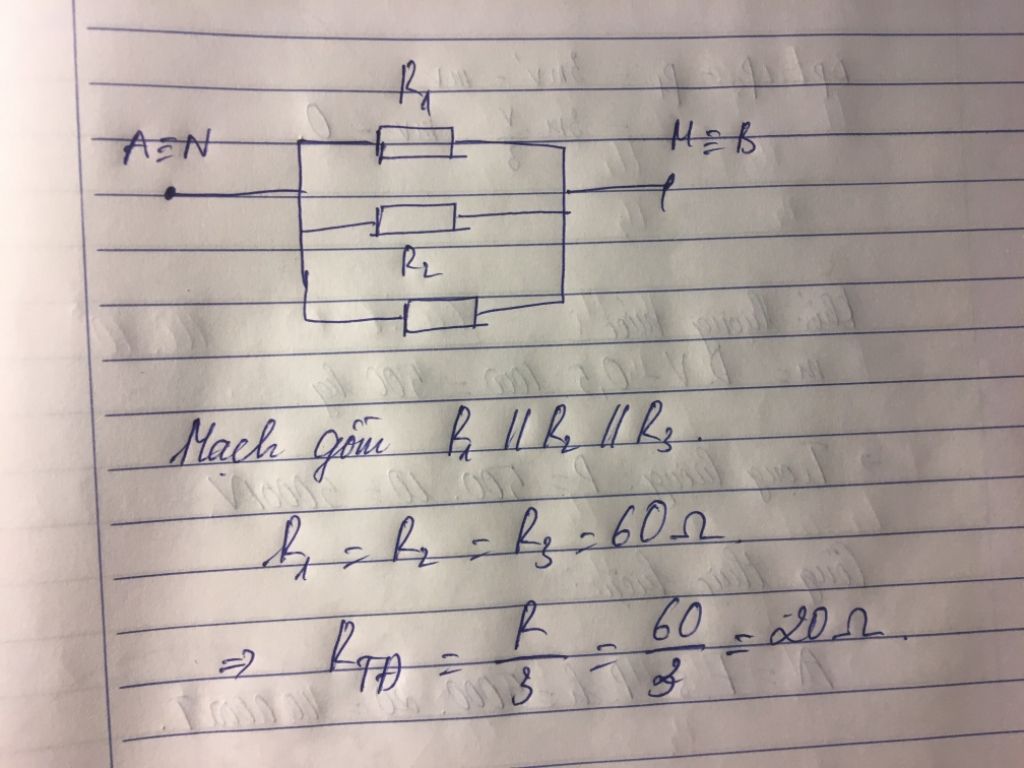 R1
A≡N
M≡B
R2
Mạch gồm R1 // R2 // R3.
R1 = R2 = R3 = 60Ω.
⇒ RTĐ = R/3 = 60/3 = 20Ω.